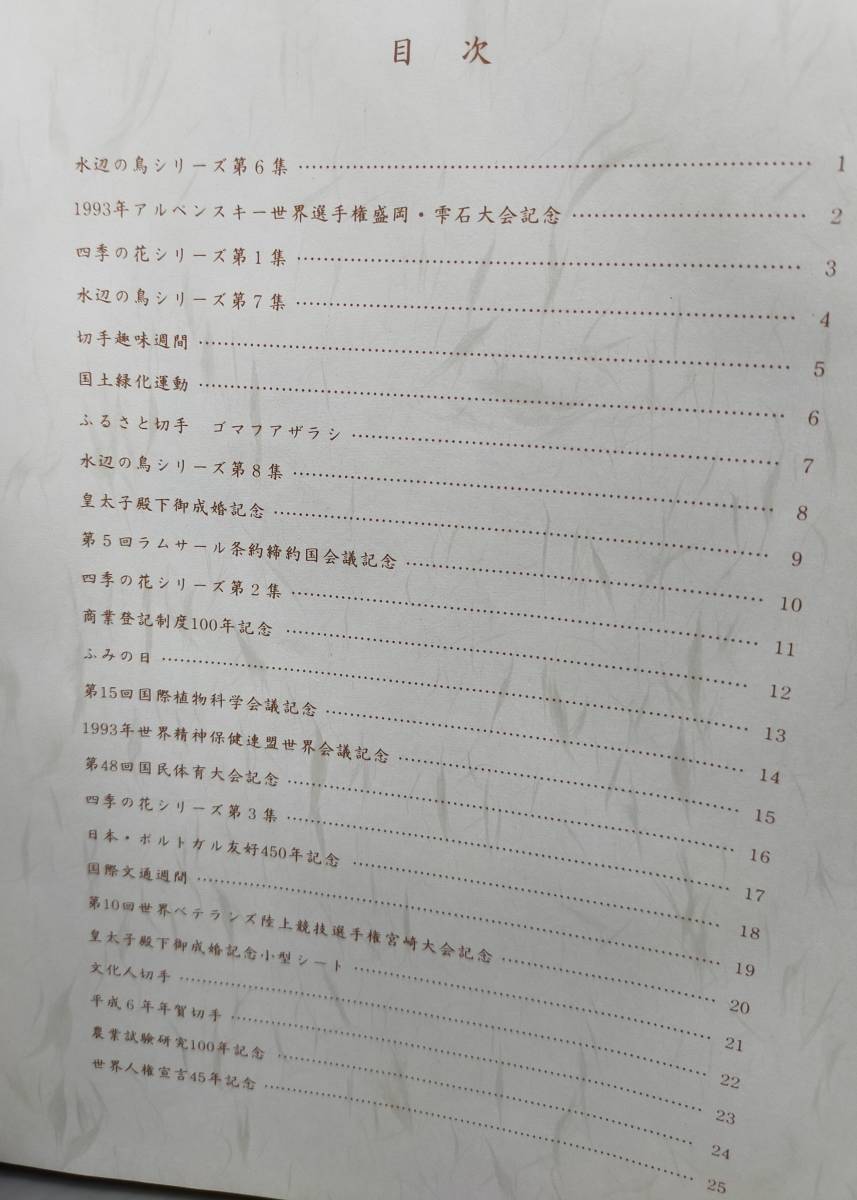 目 次
水辺の鳥シリーズ第6集 …… 1
1993年アルペンスキー世界選手権盛岡・雫石大会記念 …… 2
四季の花シリーズ第1集 …… 3
水辺の鳥シリーズ第7集 …… 4
切手趣味週間 …… 5
国土緑化運動 …… 6
ふるさと切手 ゴマフアザラシ …… 7
水辺の鳥シリーズ第8集 …… 8
皇太子殿下御成婚記念 …… 9
第5回ラムサール条約締約国会議記念 …… 10
四季の花シリーズ第2集 …… 11
商業登記制度100年記念 …… 12
ふみの日 …… 13
第15回国際植物科学会議記念 …… 14
1993年世界精神保健連盟世界会議記念 …… 15
第48回国民体育大会記念 …… 16
四季の花シリーズ第3集 …… 17
日本・ポルトガル友好450年記念 …… 18
国際文通週間 …… 19
第10回世界ベテランズ陸上競技選手権宮崎大会記念 …… 20
皇太子殿下御成婚記念小型シート …… 21
文化人切手 …… 22
平成6年年賀切手 …… 23
農業試験研究100年記念 …… 24
世界人権宣言45年記念 …… 25